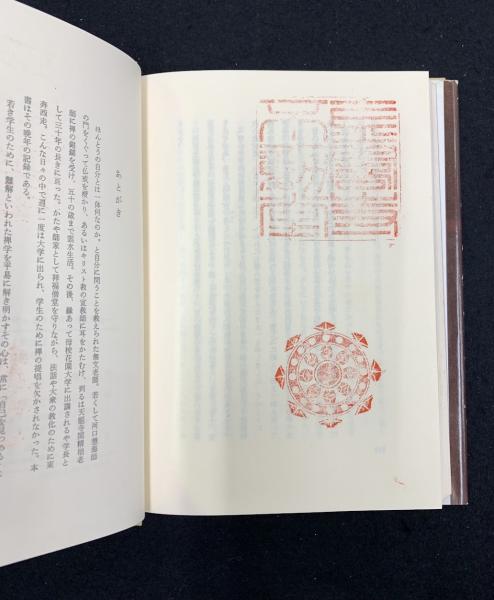 あとがき
ほんとうの自分とは一体何なのか、と自分に問うことを教えられた無文老師。若くして河口慧海師
の門をくぐって仏教を授かり、あるいはキリスト教の宣教師に耳をかたむけ、到るは天龍寺関精拙老
師に禅の鉗鎚を受け、五十の歳まで雲水生活。その後、縁あって母校花園大学に出講されるや学長と
して三十年の長きに亘った。かたや師家として祥福僧堂を守りながら、法話や大衆の教化のために東
奔西走。こんな日々の中で週に一度は大学に出られ、学生のために禅の提唱を欠かされなかった。本
書はその晩年の記録である。
若き学生のために、難解といわれた禅学を平易に解き明かすその心は、常に「自己を見つめる」